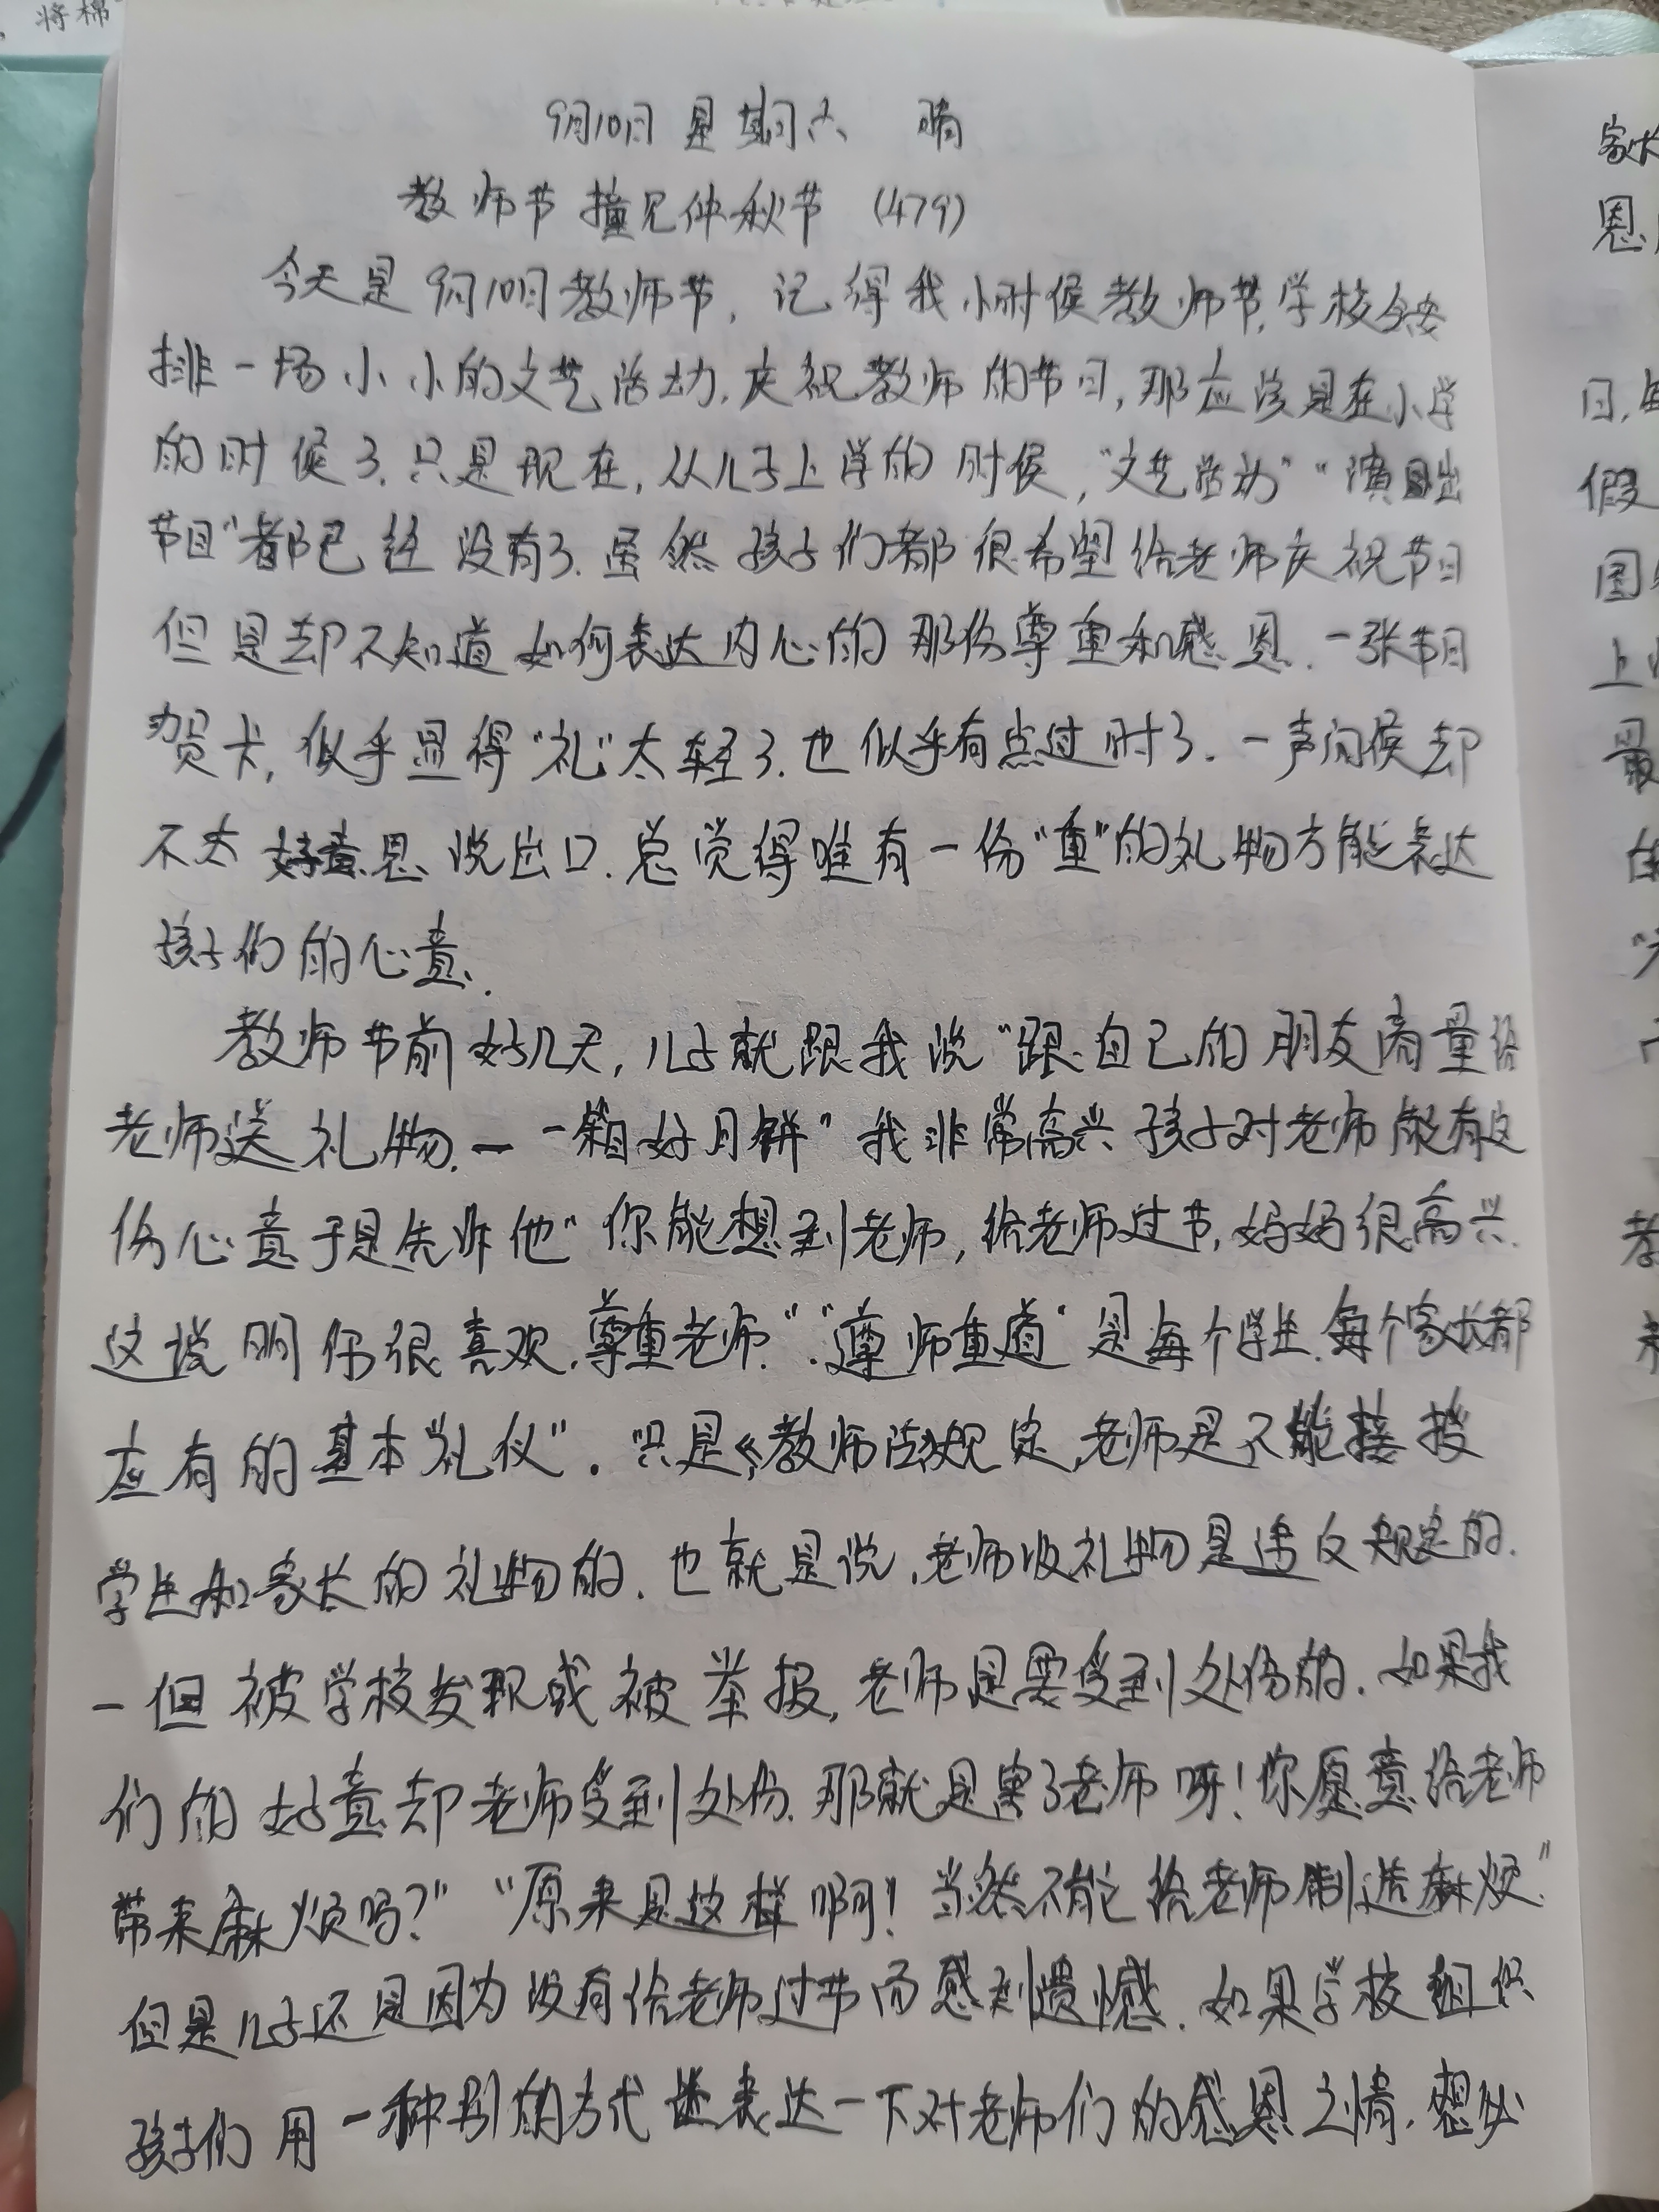 将棉
9月10日 星期六 晴
教师节撞见仲秋节 (479)
今天是9月10日教师节,记得我小时候教师节,学校会安
排一场小小的文艺活动,庆祝教师的节日,那应该是在小学
的时候了.只是现在,从儿子上学的时候,"文艺活动""演出
节目"都已经没有了.虽然孩子们都很希望给老师庆祝节日
但是却不知道如何表达内心的那份尊重和感恩.一张节日
贺卡,似乎显得"礼"太轻了.也似乎有点过时了.一声问候却
不太好意思说出口.总觉得唯有一份"重"的礼物方能表达
孩子们的心意.
教师节前好几天,儿子就跟我说"跟自己的朋友商量给
老师送礼物.一一箱好月饼"我非常高兴孩子对老师能有这
份心意于是先 他"你能想到老师,给老师过节,妈妈很高兴.
这说明你很喜欢.尊重老师.""尊师重道"是每个学生.每个家长都
应有的基本"礼仪"."只是《教师法规定,老师是不能接授
学生和家长的礼物的.也就是说,老师收礼物是违反规定的.
一但被学校发现或被举报,老师是要受到处份的.如果我
们的好意却老师受到处份.那就是害了老师呀!你愿意给老师
带来麻烦吗?""原来是这样啊!当然不能给老师制造麻烦."
但是儿子还是因为没有给老师过节而感到遗憾.如果学校组织
孩子们用一种别的方式 表达一下对老师们的感恩之情.想必
家长
恩
日,
假
国
上
最
教